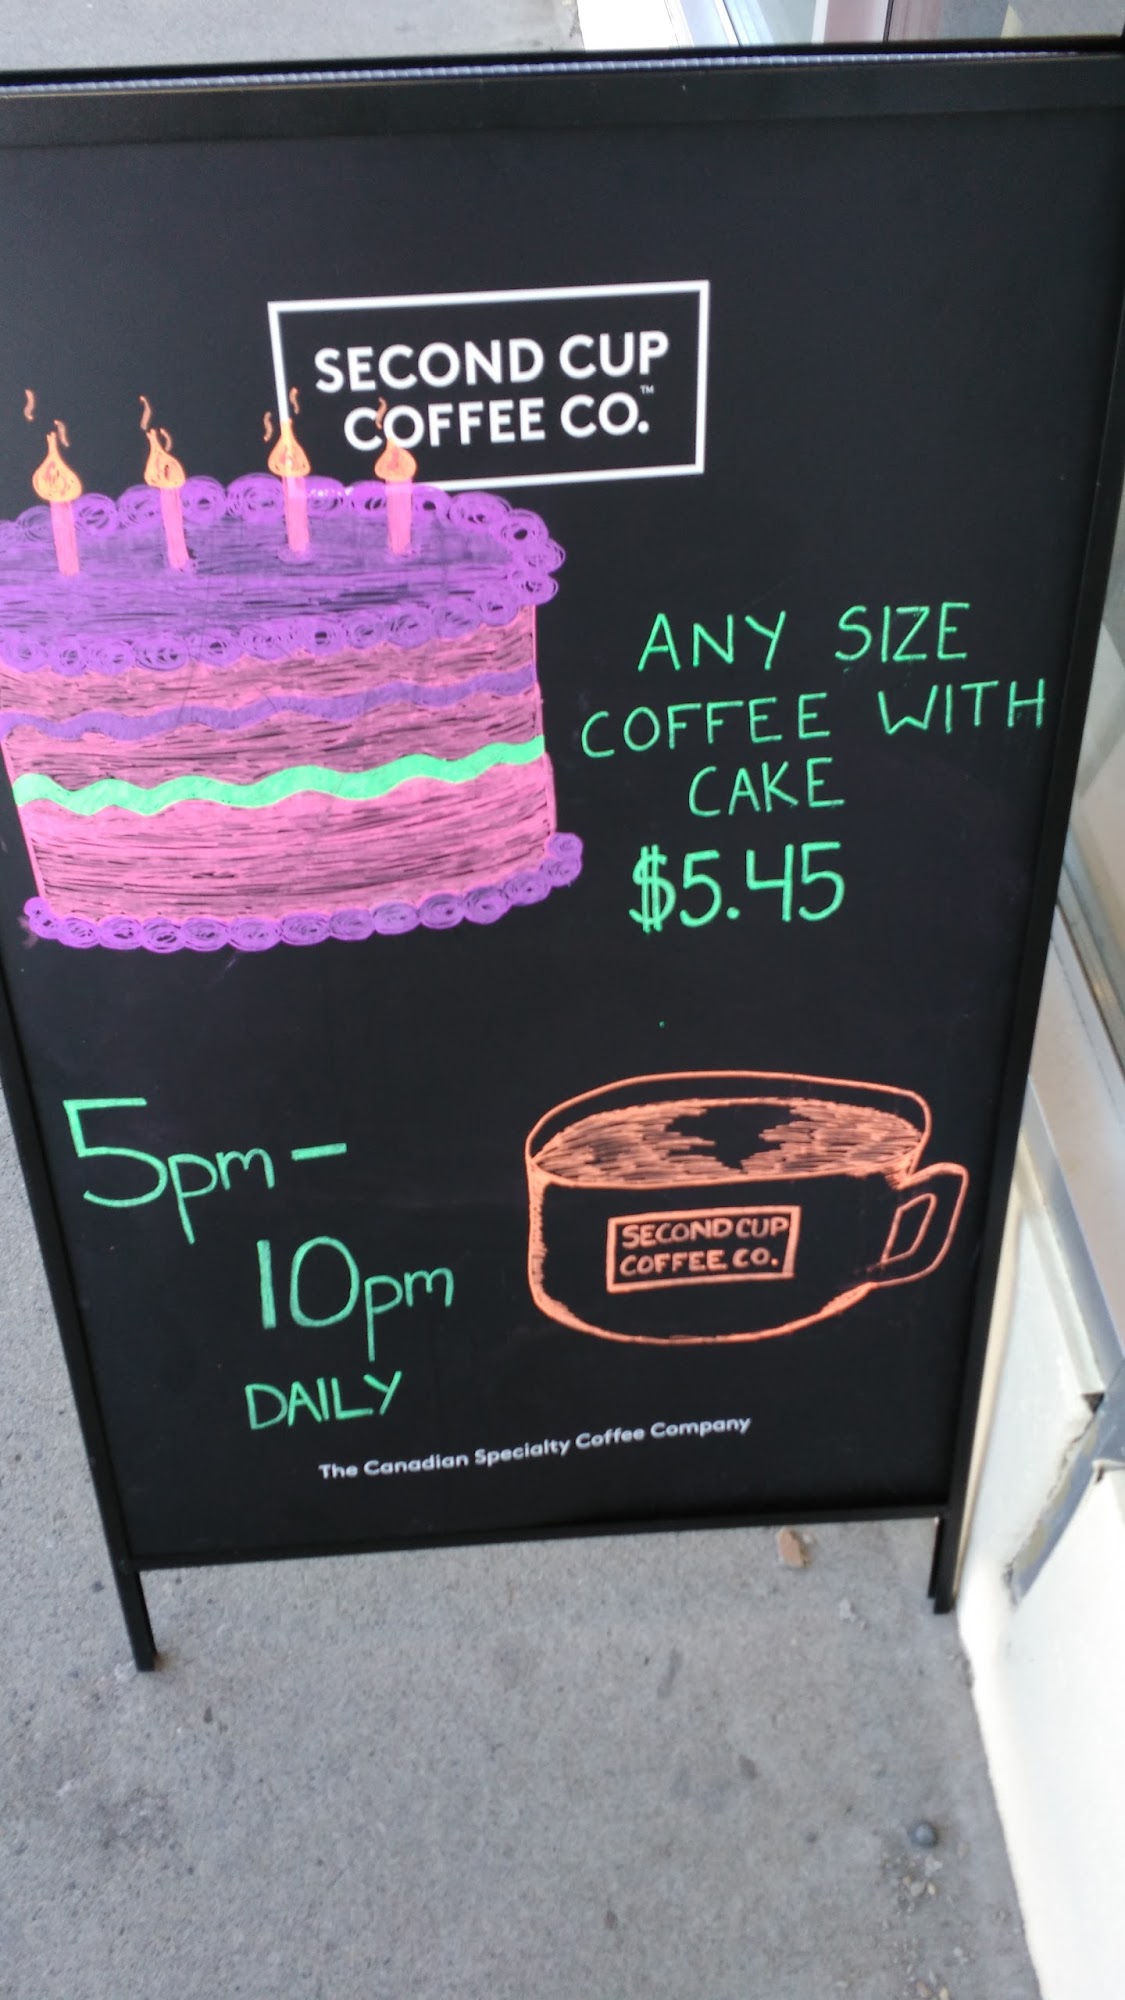 SECOND CUP
COFFEE CO.™
ANY SIZE
COFFEE WITH
CAKE
$5.45
5pm-
10pm
DAILY
SECOND CUP
COFFEE CO.
The Canadian Specialty Coffee Company